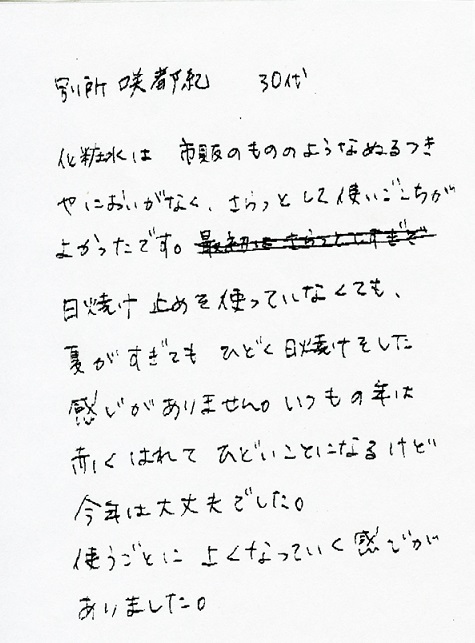 別所 咲都紀 30代
化粧水は 市販のもののようなぬるつき
やにおいがなく、さらっとして使いごこちが
よかったです。最初はさらっとしすぎで
日焼け止めを使っていなくても、
夏がすぎても ひどく日焼けをした
感じがありません。いつもの年は
赤くはれて ひどいことになるけど
今年は大丈夫でした。
使うごとに よくなっていく感じが
ありました。